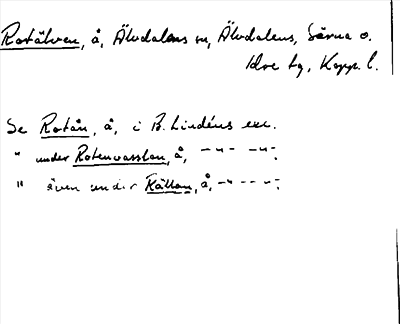 Rotälven, å, Älvdalens sn, Älvdalens, Särna o.
Idre tg, Kopp. l.
Se Rotån, å, i B. Lindéns exc.
" under Rotenvasslan, å, -"- -"-;
" även under Kättan, å, -"- - -"-;